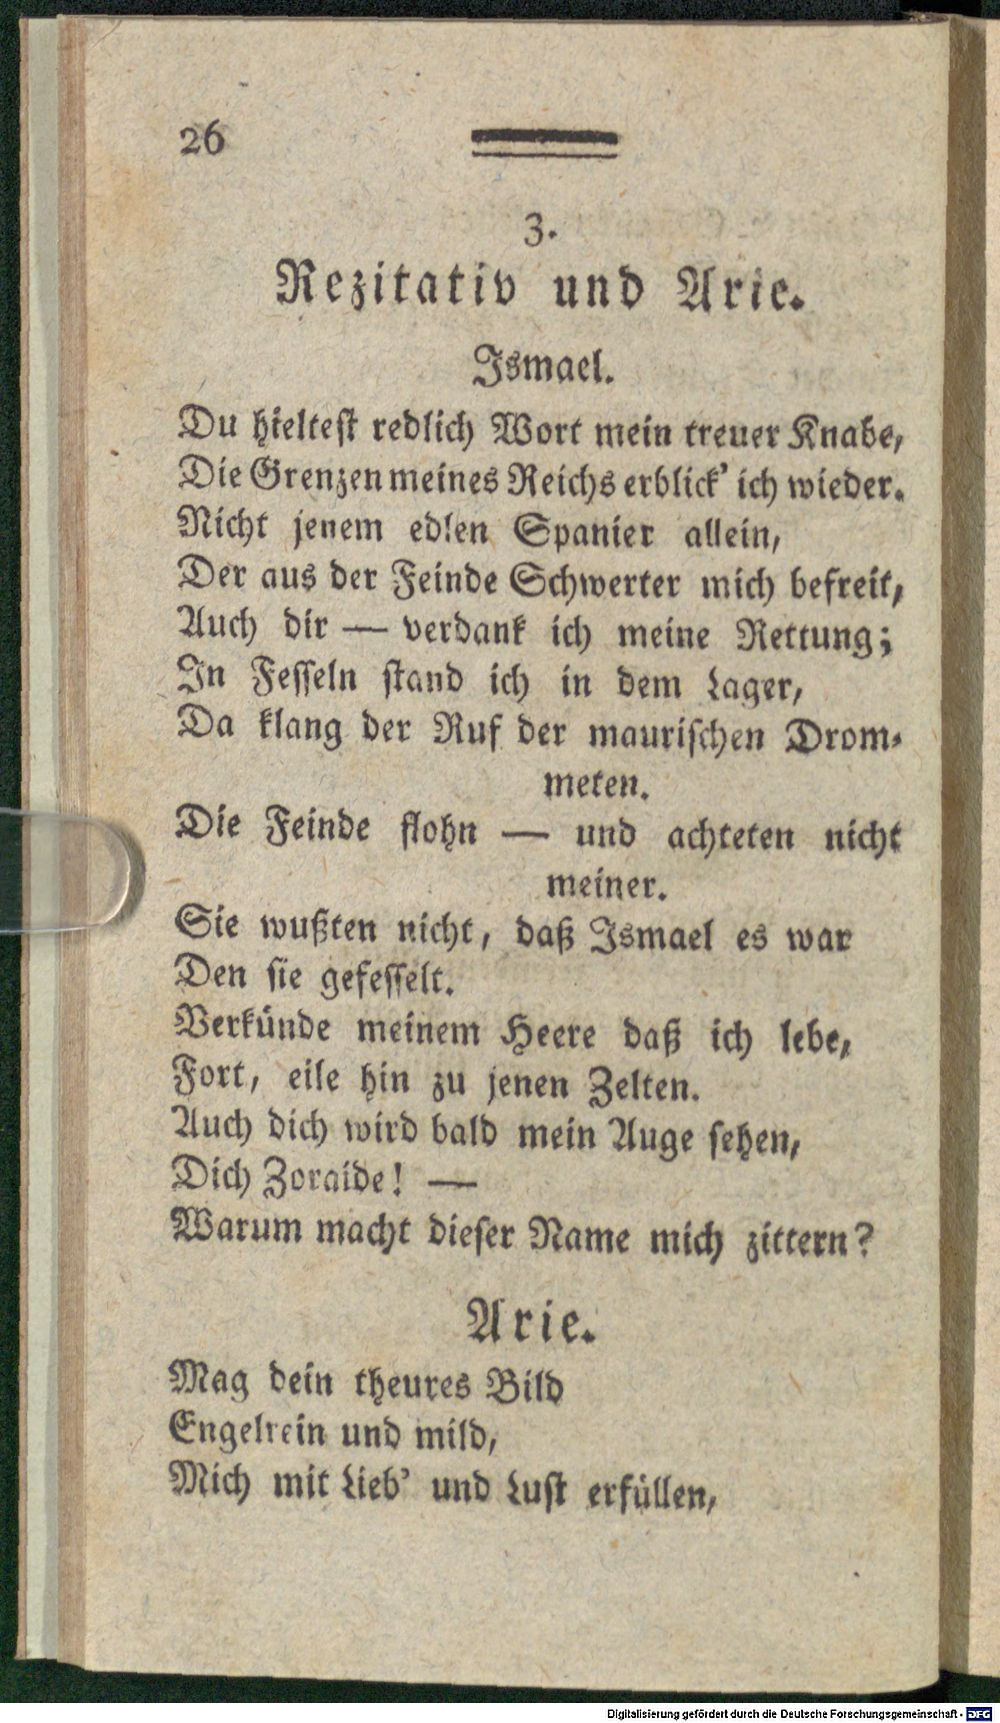 26
3.
Rezitativ und Arie.
Ismael.
Du hieltest redlich Wort mein treuer Knabe,
Die Grenzen meines Reichs erblick' ich wieder.
Nicht jenem edlen Spanier allein,
Der aus der Feinde Schwerter mich befreit,
Auch dir — verdank ich meine Rettung;
In Fesseln stand ich in dem Lager,
Da klang der Ruf der maurischen Drom-
meten.
Die Feinde flohn — und achteten nicht
meiner.
Sie wußten nicht, daß Ismael es war
Den sie gefesselt.
Verkünde meinem Heere daß ich lebe,
Fort, eile hin zu jenen Zelten.
Auch dich wird bald mein Auge sehen,
Dich Zoraide! —
Warum macht dieser Name mich zittern?
Arie.
Mag dein theures Bild
Engelrein und mild,
Mich mit Lieb' und Lust erfüllen,
Digitalisierung gefördert durch die Deutsche Forschungsgemeinschaft - DFG